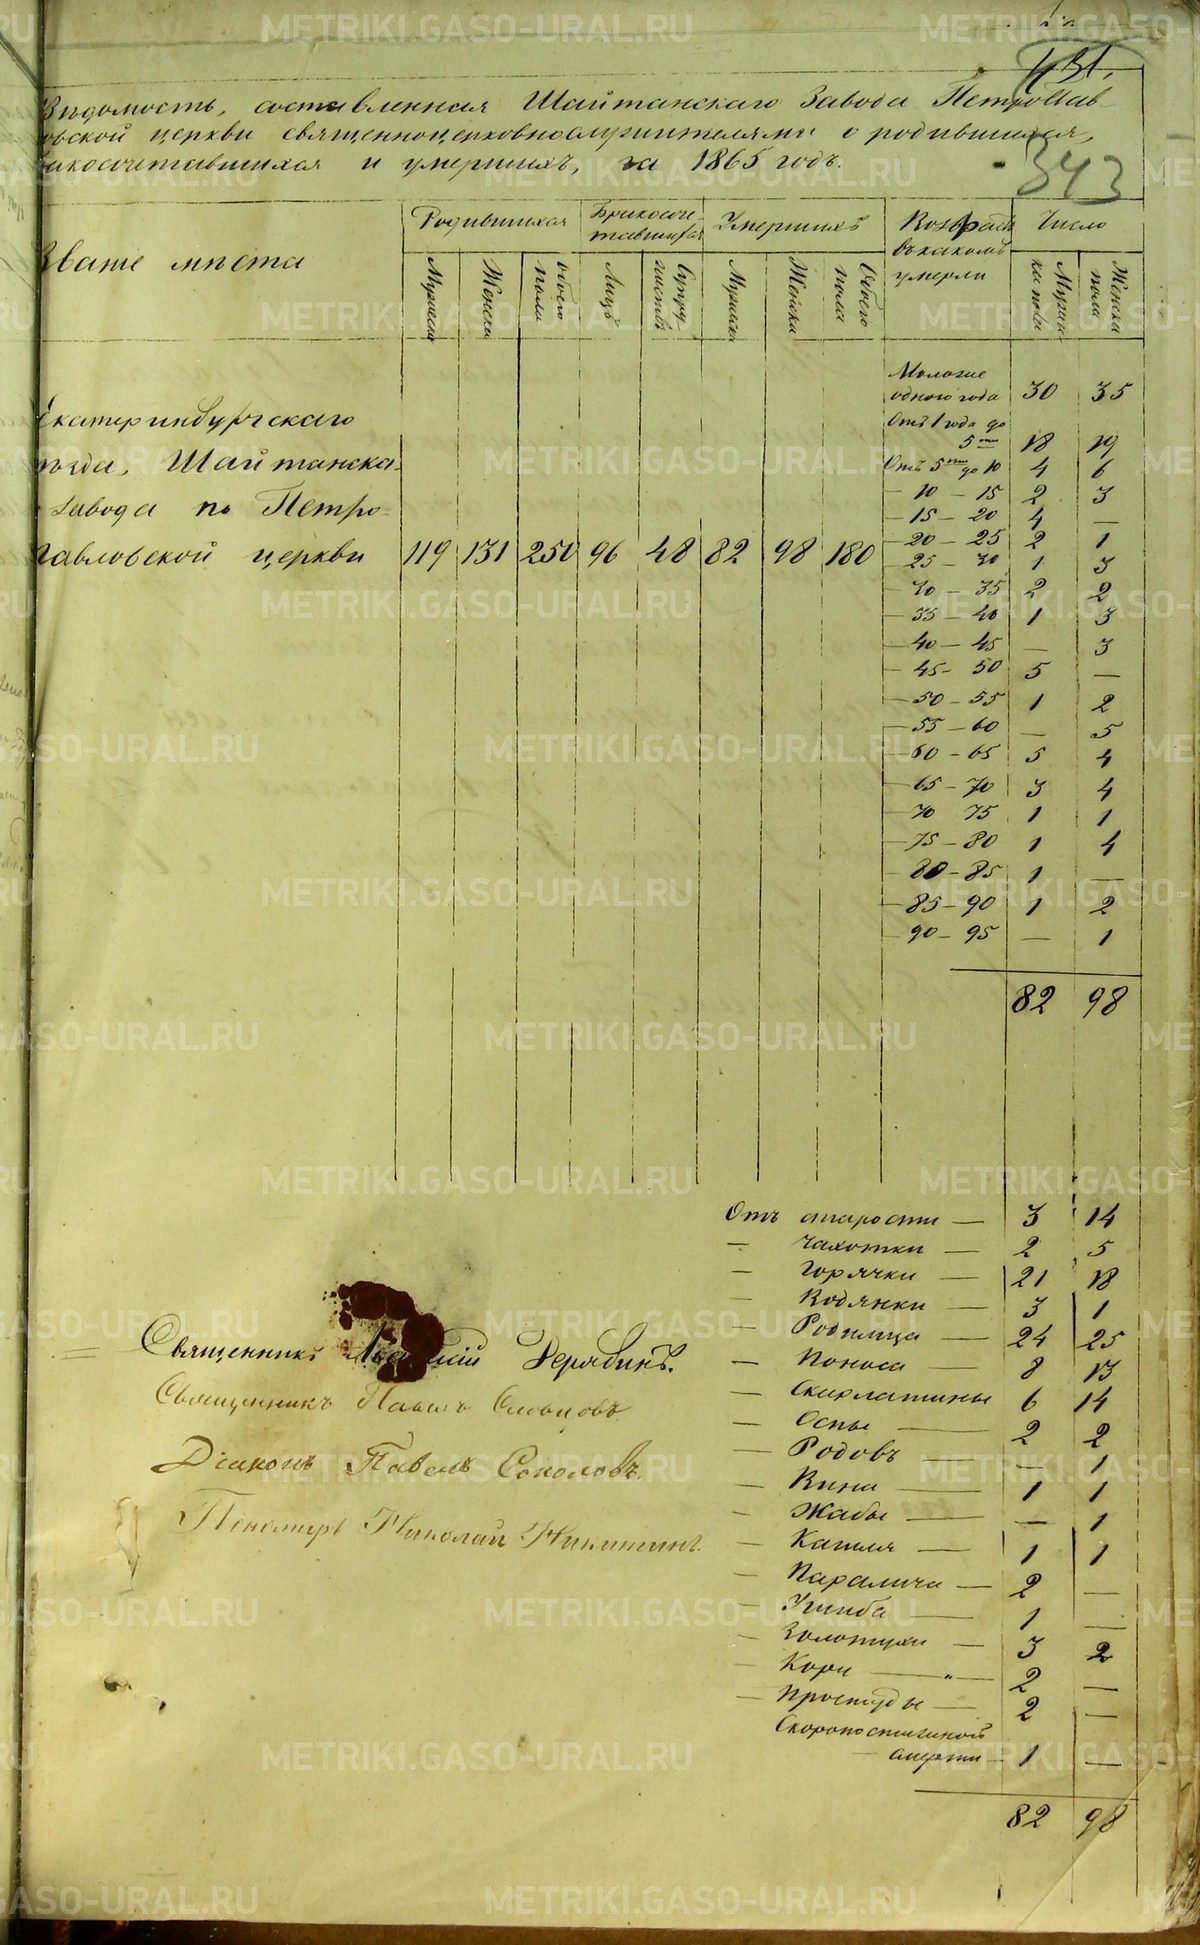 431.
343
Вѣдомость, составленная Шайтанскаго Завода Петропав
овской церкви священноцерковнослужителями о родившихся,
акосочетавшихся и умершихъ, за 1865 годъ.
Званіе мѣста
Родившихся
Бракосоче-
тавшихся
Умершихъ
Возрастъ
въ какомъ
умерли
Число
Мужеска
Женска
обоего пола
Лицъ
Супружествъ
Мужеска
Женска
Обоего пола
Мужеска пола
Женска пола
Екатеринбургскаго
уѣзда, Шайтанска-
завода по Петро-
павловской церкви 119 131 250 96 48 82 98 180
Моложе
одного года 30 35
Отъ 1 года до
5ти 18 19
Отъ 5ти до 10 4 6
— 10 — 15 2 3
— 15 — 20 4 —
— 20 — 25 2 1
— 25 — 30 1 3
— 30 — 35 2 2
— 35 — 40 1 3
— 40 — 45 — 3
— 45 — 50 5 —
— 50 — 55 1 2
— 55 — 60 — 5
— 60 — 65 5 4
— 65 — 70 3 4
— 70 75 1 1
— 75 — 80 1 4
— 80 — 85 1 —
— 85 — 90 1 2
— 90 — 95 — 1
82 98
Отъ старости — 3 14
— Чахотки — 2 5
— Горячки — 21 18
— Водянки — 3 1
— Родимца — 24 25
— Поноса — 8 13
— Скарлатины 6 14
— Оспы — 2 2
— Родовъ — — 1
— Вина — 1 1
— Жабы — — 1
— Кашля — 1 1
— Паралича — 2 —
— Ушиба — 1 —
— Золотухи — 3 2
— Кори — „ — 2 —
— Простуды — 2 —
Скоропостижной
— смерти — 1 —
82 98
Священникъ Дерябинъ.
Священникъ Павелъ Словцовъ.
Діаконъ Павелъ Соколовъ.
Пономарь Николай Никитинъ.
METRIKI.GASO-URAL.RU